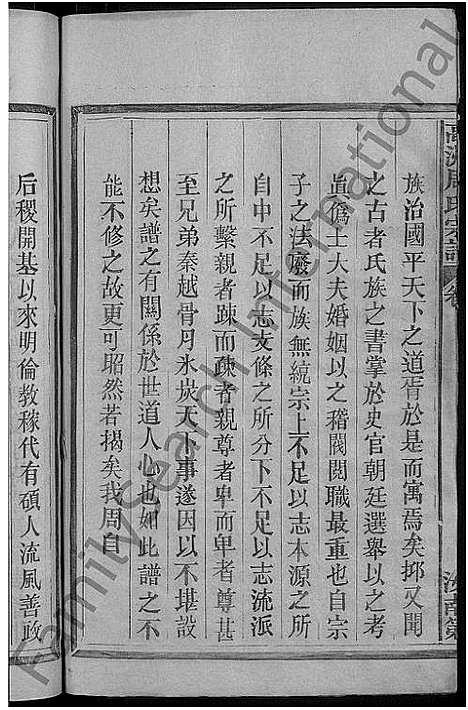 族治國平天下之道胥於是而寓焉矣抑又聞
之古者氏族之書掌於史官朝廷選舉以之考
眞僞士大夫婚姻以之稽閥閱職最重也自宗
子之法廢而族無統宗上不足以志本源之所
自中不足以志支條之所分下不足以志流派
之所繫親者疎而疎者親尊者卑而卑者尊甚
至兄弟秦越骨月氷炭天下事遂因以不堪設
想矣譜之有關係於世道人心也如此譜之不
能不修之故更可昭然若揭矣我周自
后稷開基以來明倫教稼代有碩人流風善政
FamilySearch International